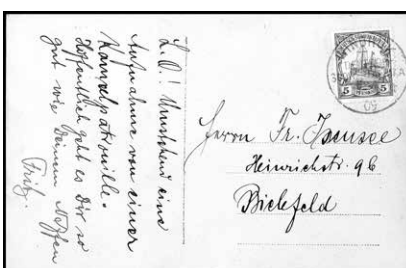 L. O.! Umstehend eine
Aufnahme von einer
Kamelpatrouille.
Hoffentlich geht es Dir so
gut wie Deinem Neffen
Fritz.
Herrn Fr. Isensee
Heinrichstr. 9b
Bielefeld
5 5
09